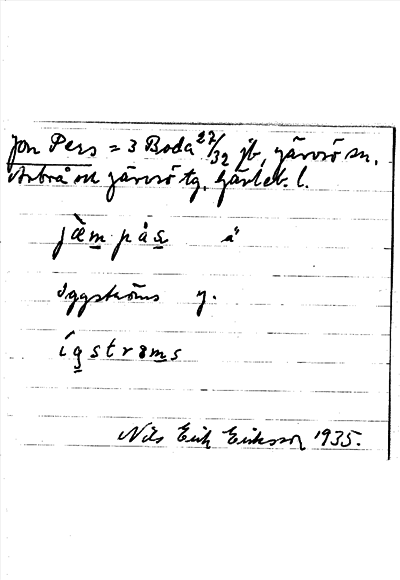 Jon Pers = 3 Boda 27/32 jb, Järvsö sn,
Arbrå ok Järvsö tg, Gävleb. l.
jæm pås ä
Iggströms y.
igstrøms
Nils Erik Eriksson 1935.